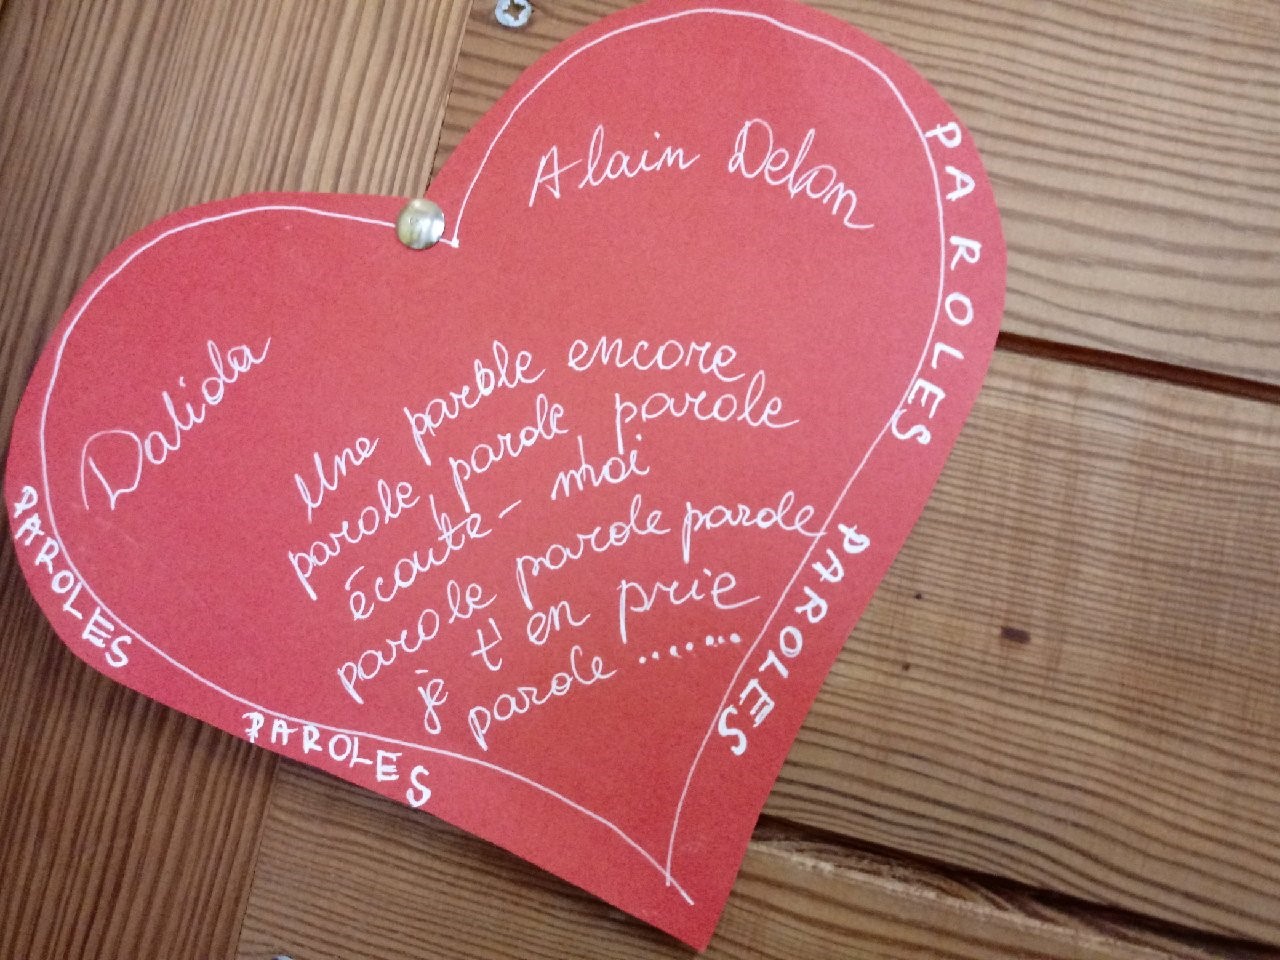 Alain Delon
Dalida
Une parole encore
parole, parole, parole
écoute-moi
parole parole parole
je t'en prie
parole .......
PAROLES
PAROLES
PAROLES
PAROLES